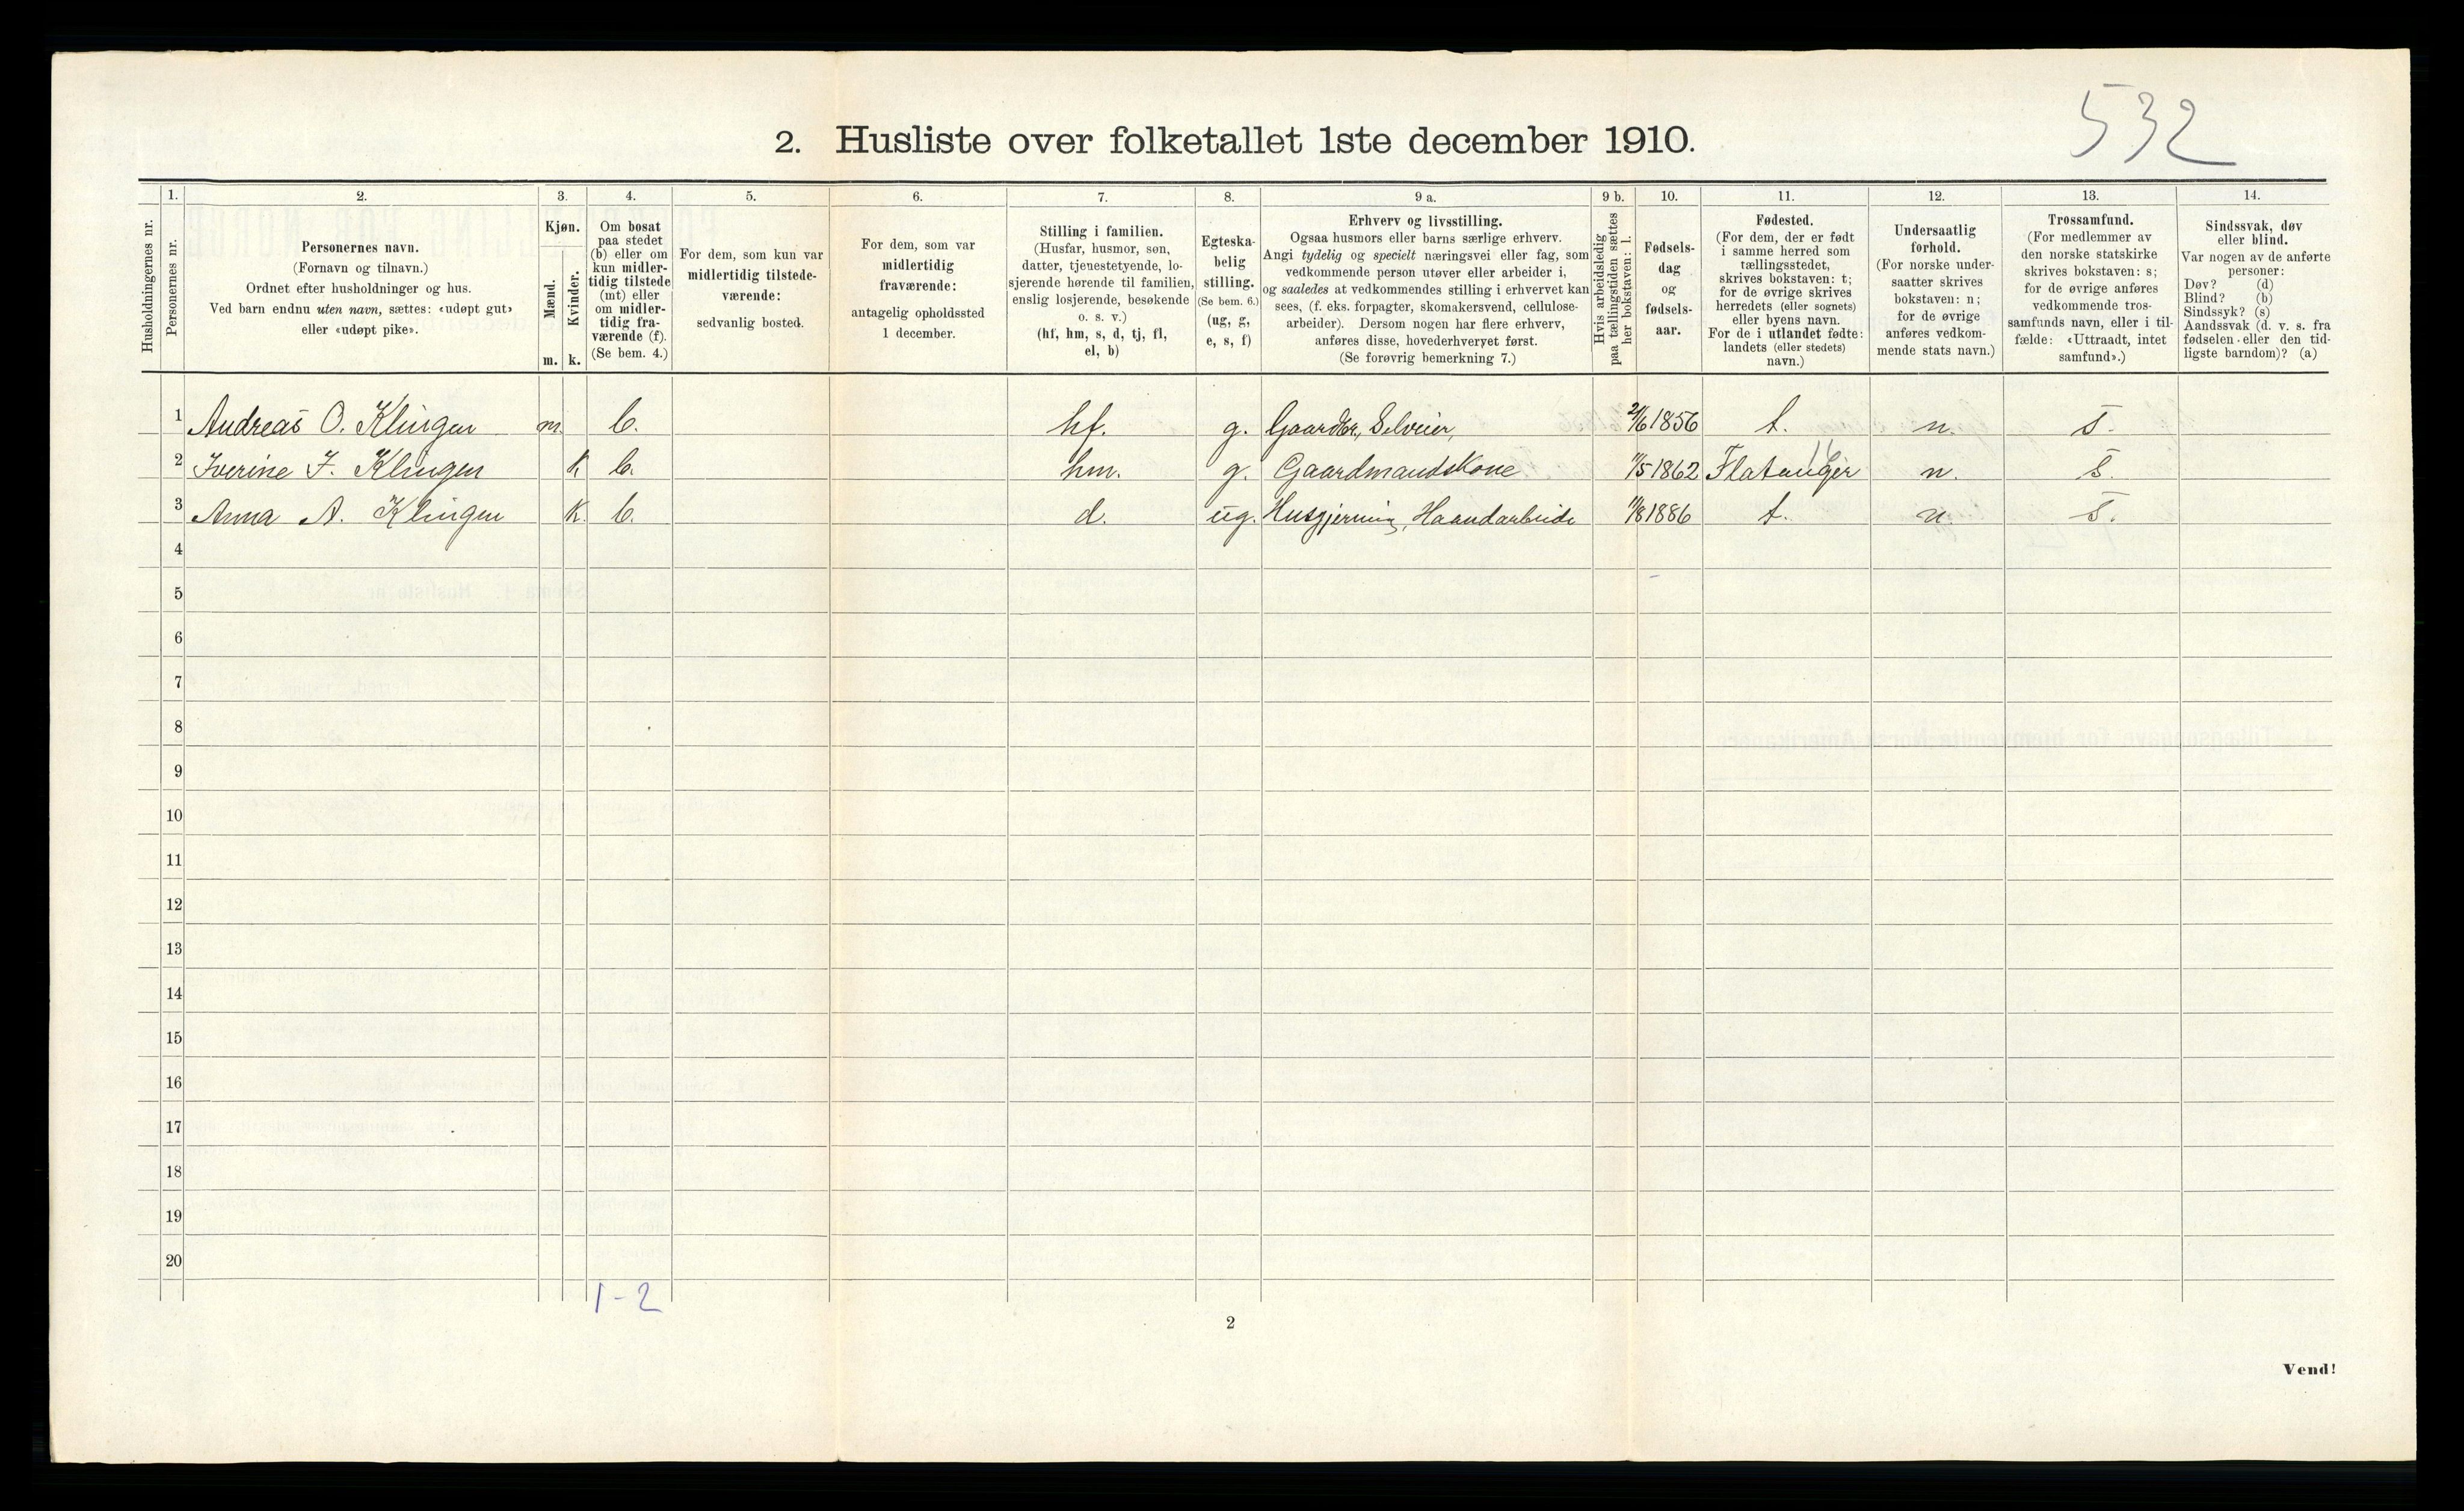 532
2. Husliste over folketallet 1ste december 1910.
Husholdningernes nr.
1.
Personernes nr.
2.
Personernes navn.
(Fornavn og tilnavn.)
Ordnet efter husholdninger og hus.
Ved barn endnu uten navn, sættes: «udøpt gut»
eller «udøpt pike».
3.
Kjøn.
Mænd.
Kvinder.
m.
k.
4.
Om bosat
paa stedet
(b) eller om
kun midler-
tidig tilstede
(mt) eller
om midler-
tidig fra-
værende (f).
(Se bem. 4.)
5.
For dem, som kun var
midlertidig tilstede-
værende:
sedvanlig bosted.
6.
For dem, som var
midlertidig
fraværende:
antagelig opholdssted
1 december.
7.
Stilling i familien.
(Husfar, husmor, søn,
datter, tjenestetyende, lo-
sjerende hørende til familien,
enslig losjerende, besøkende
o. s. v.)
(hf, hm, s, d, tj, fl,
el, b)
8.
Egteska-
belig
stilling.
(Se bem. 6.)
(ug, g,
e, s, f)
9 a.
Erhverv og livsstilling.
Ogsaa husmors eller barns særlige erhverv.
Angi tydelig og specielt næringsvei eller fag, som
vedkommende person utøver eller arbeider i,
og saaledes at vedkommendes stilling i erhvervet kan
sees, (f. eks. forpagter, skomakersvend, cellulose-
arbeider). Dersom nogen har flere erhverv,
anføres disse, hovederhvervet først.
(Se forøvrig bemerkning 7.)
9 b.
Hvis arbeidsledig
paa tællingstiden sættes
her bokstaven: l.
10.
Fødsels-
dag
og
fødsels-
aar.
11.
Fødested.
(For dem, der er født
i samme herred som
tællingsstedet,
skrives bokstaven: t;
for de øvrige skrives
herredets (eller sognets)
eller byens navn.
For de i utlandet fødte:
landets (eller stedets)
navn.)
12.
Undersaatlig
forhold.
(For norske under-
saatter skrives
bokstaven: n;
for de øvrige
anføres vedkom-
mende stats navn.)
13.
Trossamfund.
(For medlemmer av
den norske statskirke
skrives bokstaven: s;
for de øvrige anføres
vedkommende tros-
samfunds navn, eller i til-
fælde: «Uttraadt, intet
samfund».)
14.
Sindssvak, døv
eller blind.
Var nogen av de anførte
personer:
Døv? (d)
Blind? (b)
Sindssyk? (s)
Aandssvak (d. v. s. fra
fødselen eller den tid-
ligste barndom)? (a)
1 Andreas O. Klingen m. b. hf. g. Gaardbr, Selveier, 1856 t. n. s.
2 Iverine J. Klingen k b. hm. g. Gaardmandskone 11/5 1862 Flatanger 16 n. s.
3 Anna A. Klingen k. b. d. ug. Husgjerning, Haandarbeide 11/8 1886 t. n s.
4
5
6
7
8
9
10
11
12
13
14
15
16
17
18
19
20
1-2
2
Vend!